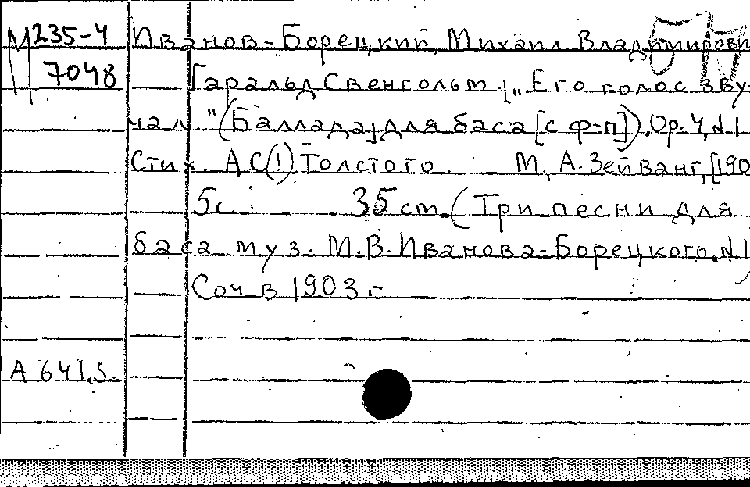 М 235-4 Иванов-Борецкий, Михаил Владимирови
7048 Гаральд Свенгольм. [„Его голос зву-
чал"(Баллада) для баса [с ф-п]). Op. 4, N 1
Стих. А С(!) Толстого. М, А. Зейванг, [190
5с 35 cm. (Три песни для
баса муз. М.В. Иванова-Борецкого. N 1)
Соч в 1903 г
А 641.5.